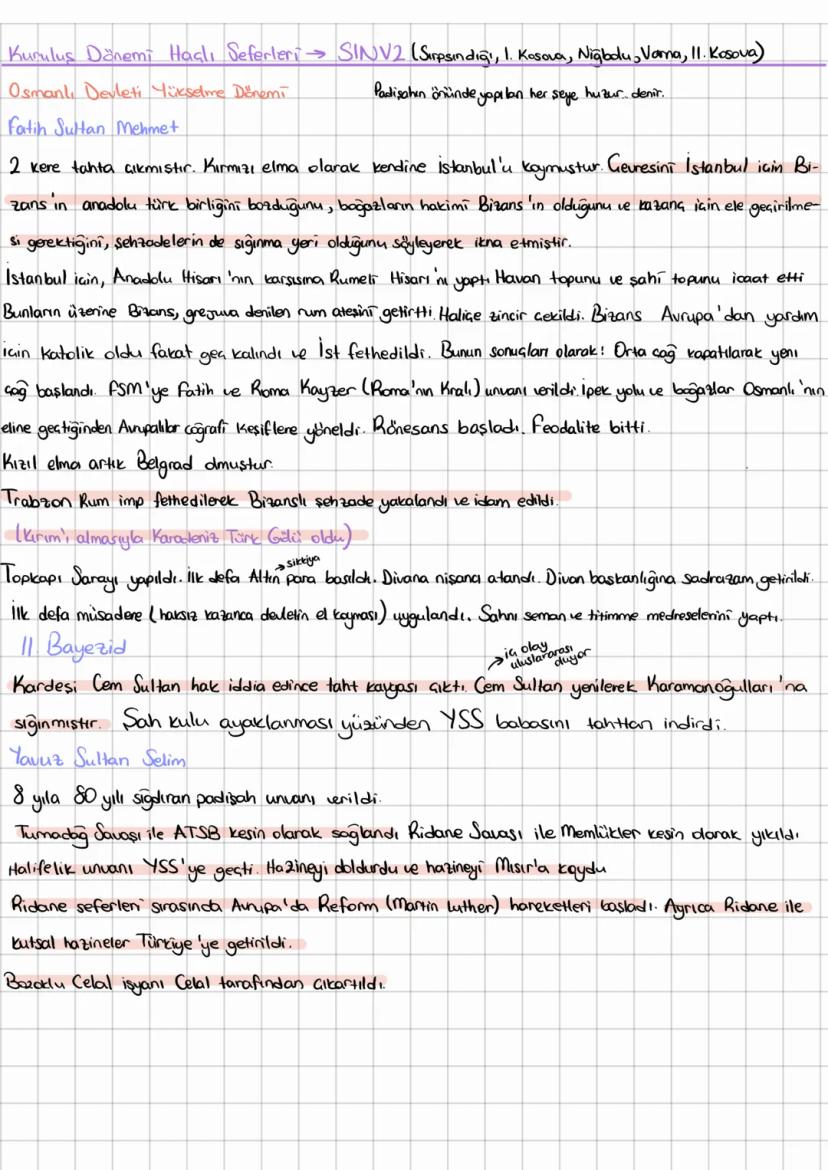 Kuruluş Dönemi Haçlı Seferleri → SINV2 (Sırpsındığı, I. Kosova, Niğbolu, Varna, II. Kosova)
Osmanlı Devleti Yükselme Dönemi Padişahın önünde yapılan her şeye huzur.. denir.
Fatih Sultan Mehmet
2 kere tahta çıkmıştır. Kırmızı elma olarak kendine İstanbul'u koymuştur. Çevresini İstanbul için Bi-
zans'ın anadolu türk birliğini bozduğunu, boğazların hakimi Bizans'ın olduğunu ve kazanç için ele geçirilme-
si gerektiğini, şehzadelerin de sığınma yeri olduğunu söyleyerek ikna etmiştir.
İstanbul için, Anadolu Hisarı'nın karşısına Rumeli Hisarı'nı yaptı. Havan topunu ve şahi topunu icaat etti
Bunların üzerine Bizans, grejuva denilen rum ateşini getirtti. Haliçe zincir çekildi. Bizans Avrupa'dan yardım
için Katolik oldu fakat geç kalındı ve İst fethedildi. Bunun sonuçları olarak! Orta çağ kapatılarak yeni
çağ başlandı. FSM'ye Fatih ve Roma Kayzer (Roma'nın Kralı) unvanı verildi. İpek yolu ve boğazlar Osmanlı'nın
eline geçtiğinden Avrupalılar coğrafi keşiflere yöneldi. Rönesans başladı. Feodalite bitti.
Kızıl elma artık Belgrad olmuştur.
Trabzon Rum imp fethedilerek Bizanslı şehzade yakalandı ve idam edildi.
(Kırım'ı almasıyla Karadeniz Türk Gölü oldu)
→ sikkiya
Topkapı Sarayı yapıldı. İlk defa Altın para basıldı. Divana nişancı atandı. Divan başkanlığına sadrazam getirildi.
İlk defa müsadere (haksız kazanca devletin el koyması) uygulandı. Sahnı seman ve titimme medreselerini yaptı.
II. Bayezid
→ iç olay uluslararası oluyor
Kardeşi Cem Sultan hak iddia edince taht kavgası çıktı. Cem Sultan yenilerek Karamanoğulları'na
sığınmıştır. Şah kulu ayaklanması yüzünden YSS babasını tahttan indirdi.
Yavuz Sultan Selim
8 yıla 80 yılı sığdıran padişah unvanı verildi.
Turnadağ Savaşı ile ATSB kesin olarak sağlandı Ridane Savaşı ile Memlükler kesin olarak yıkıldı
Halifelik unvanı YSS'ye geçti. Hazineyi doldurdu ve hazineyi Mısır'a koydu
Ridane seferleri sırasında Avrupa'da Reform (Martin Luther) hareketleri başladı. Ayrıca Ridane ile
kutsal hazineler Türkiye'ye getirildi.
Bozoklu Celal isyanı Celal tarafından çıkartıldı.